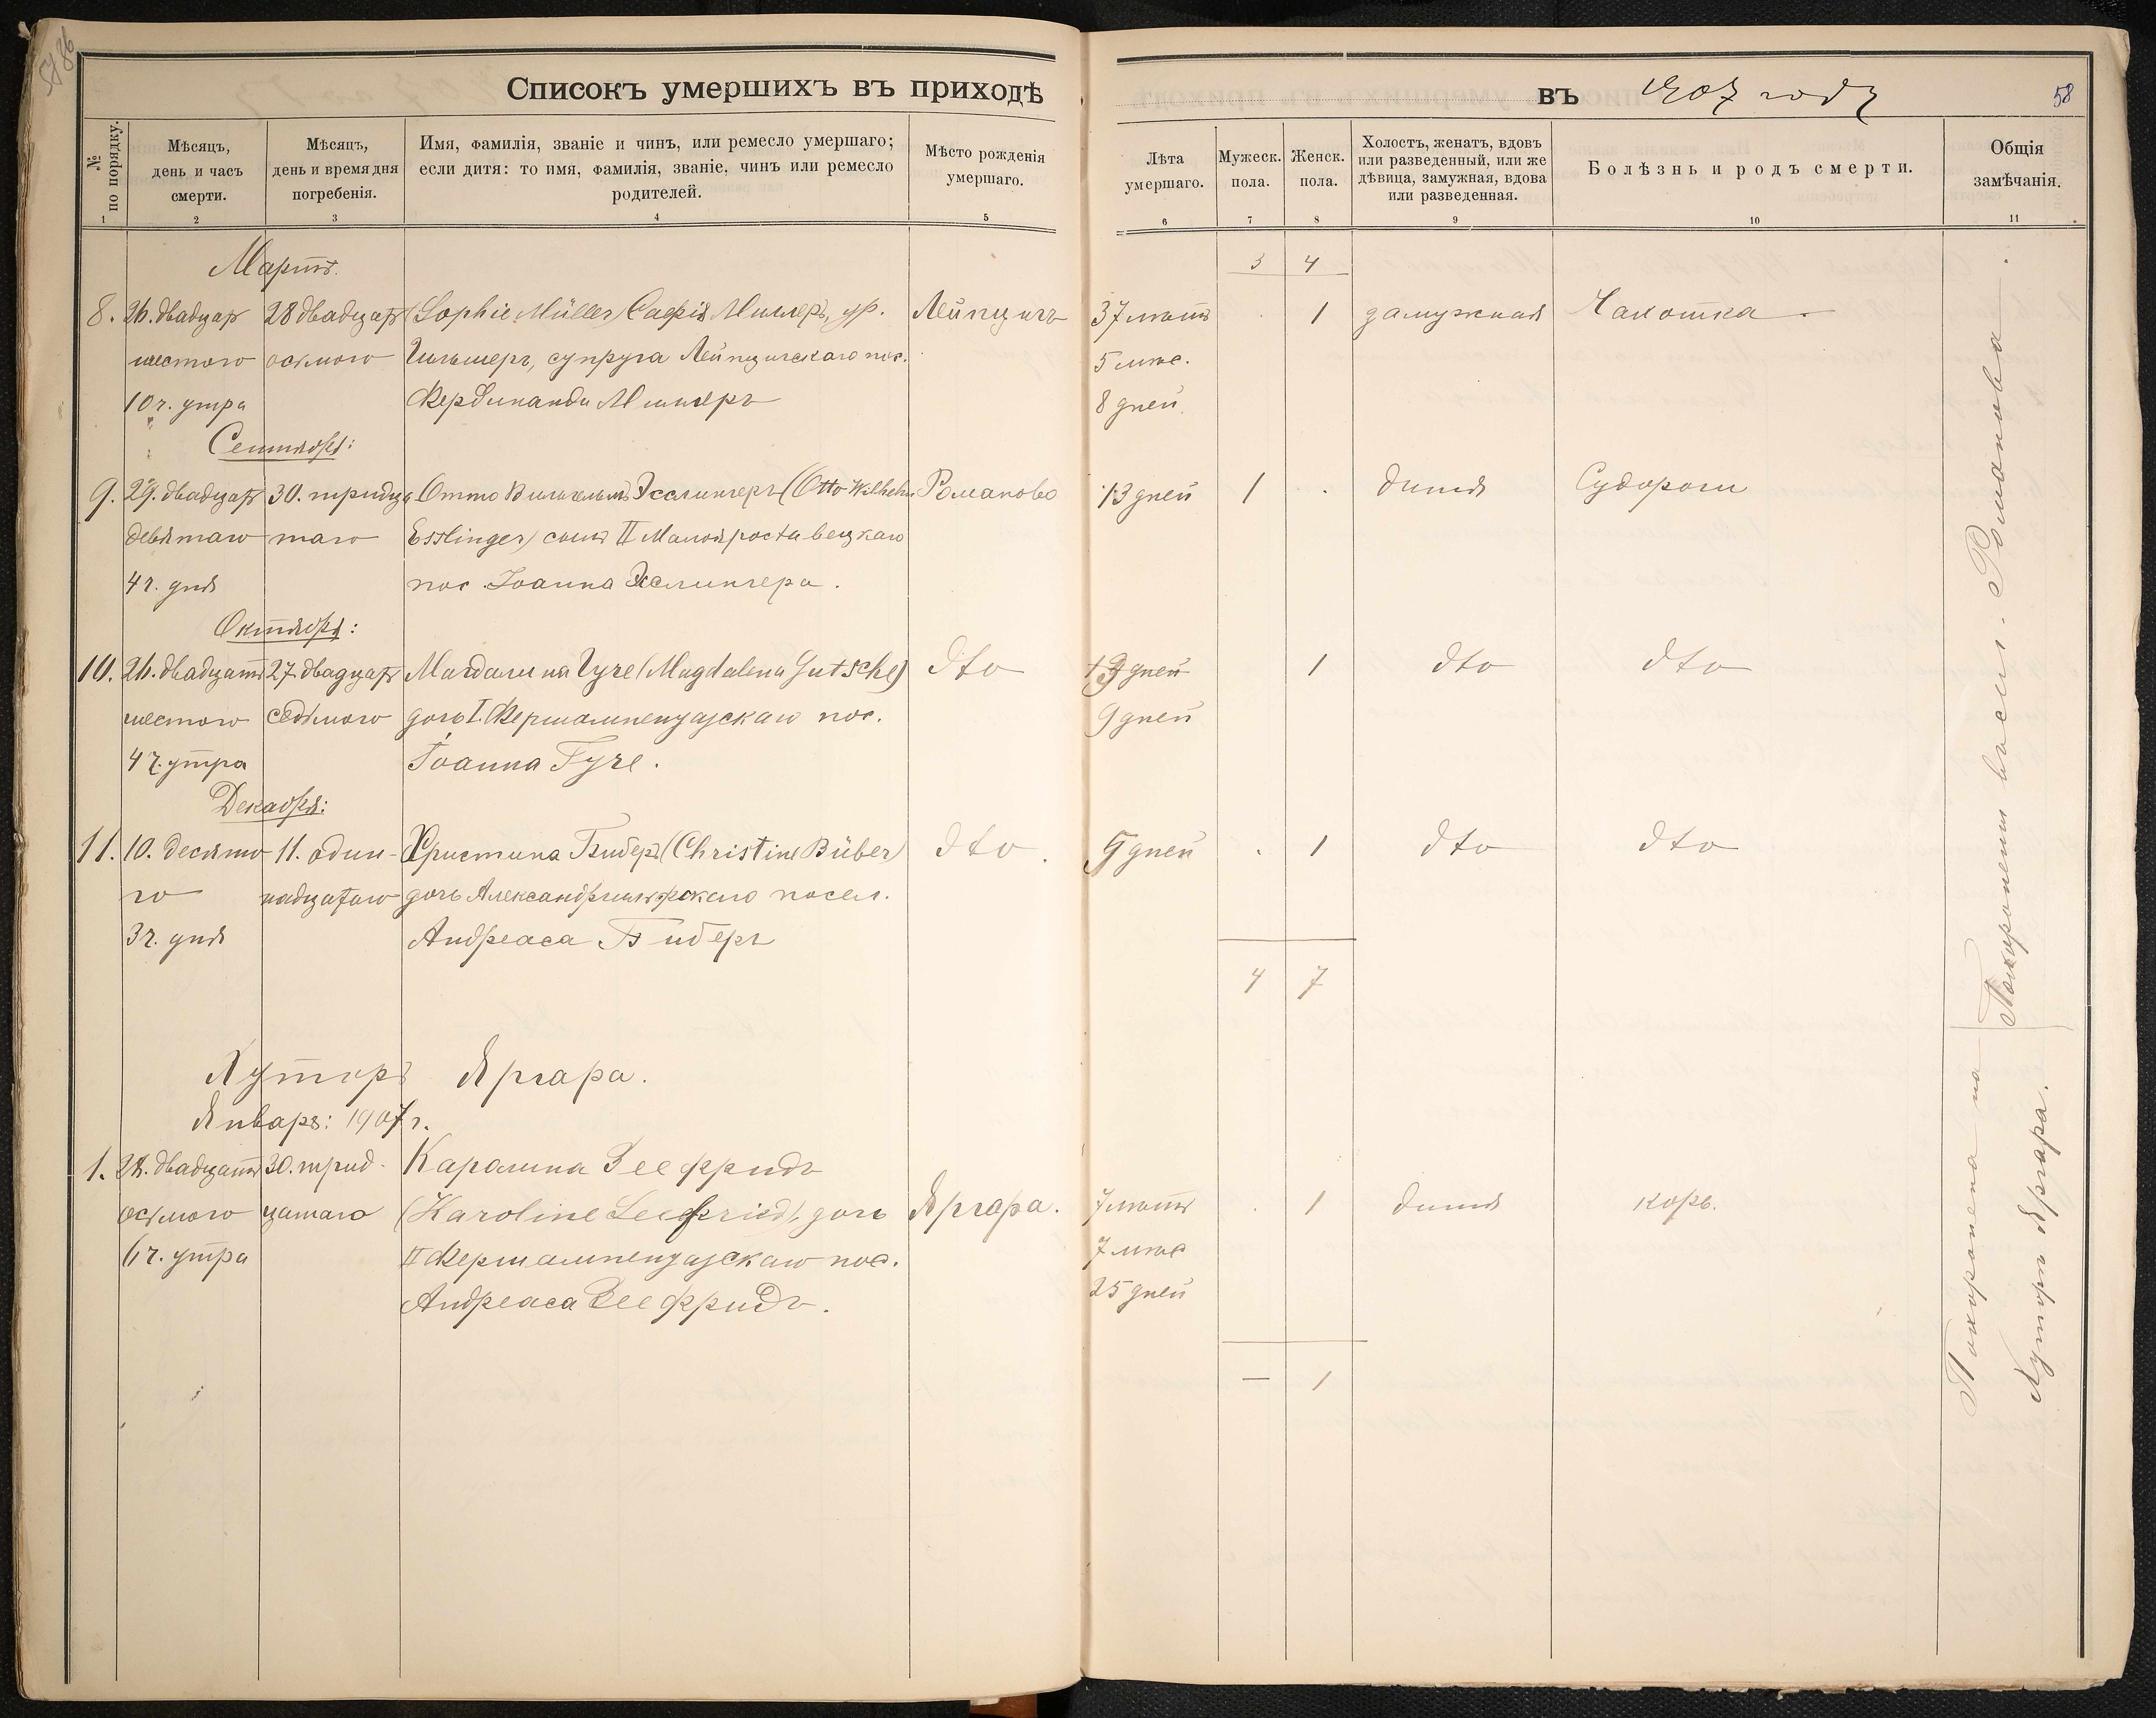 Списокъ умершихъ въ приходѣ
въ 1907 году
58
№ по порядку.
Мѣсяцъ, день и часъ смерти.
Мѣсяцъ, день и время дня погребенія.
Имя, фамилія, званіе и чинъ, или ремесло умершаго; если дитя: то имя, фамилія, званіе, чинъ или ремесло родителей.
Мѣсто рожденія умершаго.
Лѣта умершаго.
Мужеск. пола.
Женск. пола.
Холостъ, женатъ, вдовъ или разведенный, или же дѣвица, замужная, вдова или разведенная.
Болѣзнь и родъ смерти.
Общія замѣчанія.
1 2 3 4 5 6 7 8 9 10 11
Мартъ.
3 4
8. 26. двадцат 28 двадцат (Sophie Müller) Софія Миллеръ, ур. Лейпцигъ 37 лѣтъ 1 замужная Чахотка
шестого осьмого супруга Лейпцигскаго пос. 5 мѣс.
10 ч. утра Фердинанда Миллеръ 8 дней.
Сентября:
9. 29. двадцат 30. тридца Отто Вильгельмъ Эсслингеръ (Otto Wilhelm Романово 13 дней 1 дитя Судороги
девятаго таго Esslinger) сынъ II Малоярославецкаго
4 ч. дня пос. Іоанна Эсслингера.
Октября:
10. 26. двадцать 27 двадцат Магдалина Гуче (Magdalena Gutsche) dto 1 dto dto
шестого седьмого дочь I. Фершампенуазскаго пос. 9 дней
4 ч. утра Іоанна Гуче.
Декабря:
11. 10. десято 11. один- Христина Биберъ (Christine Büber) dto. 5 дней 1 dto dto
го надцатаго дочь посел.
3 ч. дня Андреаса Биберъ
4 7
Хуторъ Яргара.
Январь: 1907 г.
1. 28. двадцать 30. трид- Каролина Зеефридъ
осьмого цатаго (Karoline Seefried), дочь Яргара. 7 лѣтъ 1 дитя корь.
6 ч. утра II Фершампенуазскаго пос. 7 мѣс
Андреаса Зеефридъ. 25 дней
— 1
Похоронены въ посел. Романовка
Похоронена на
Хуторѣ Яргара.